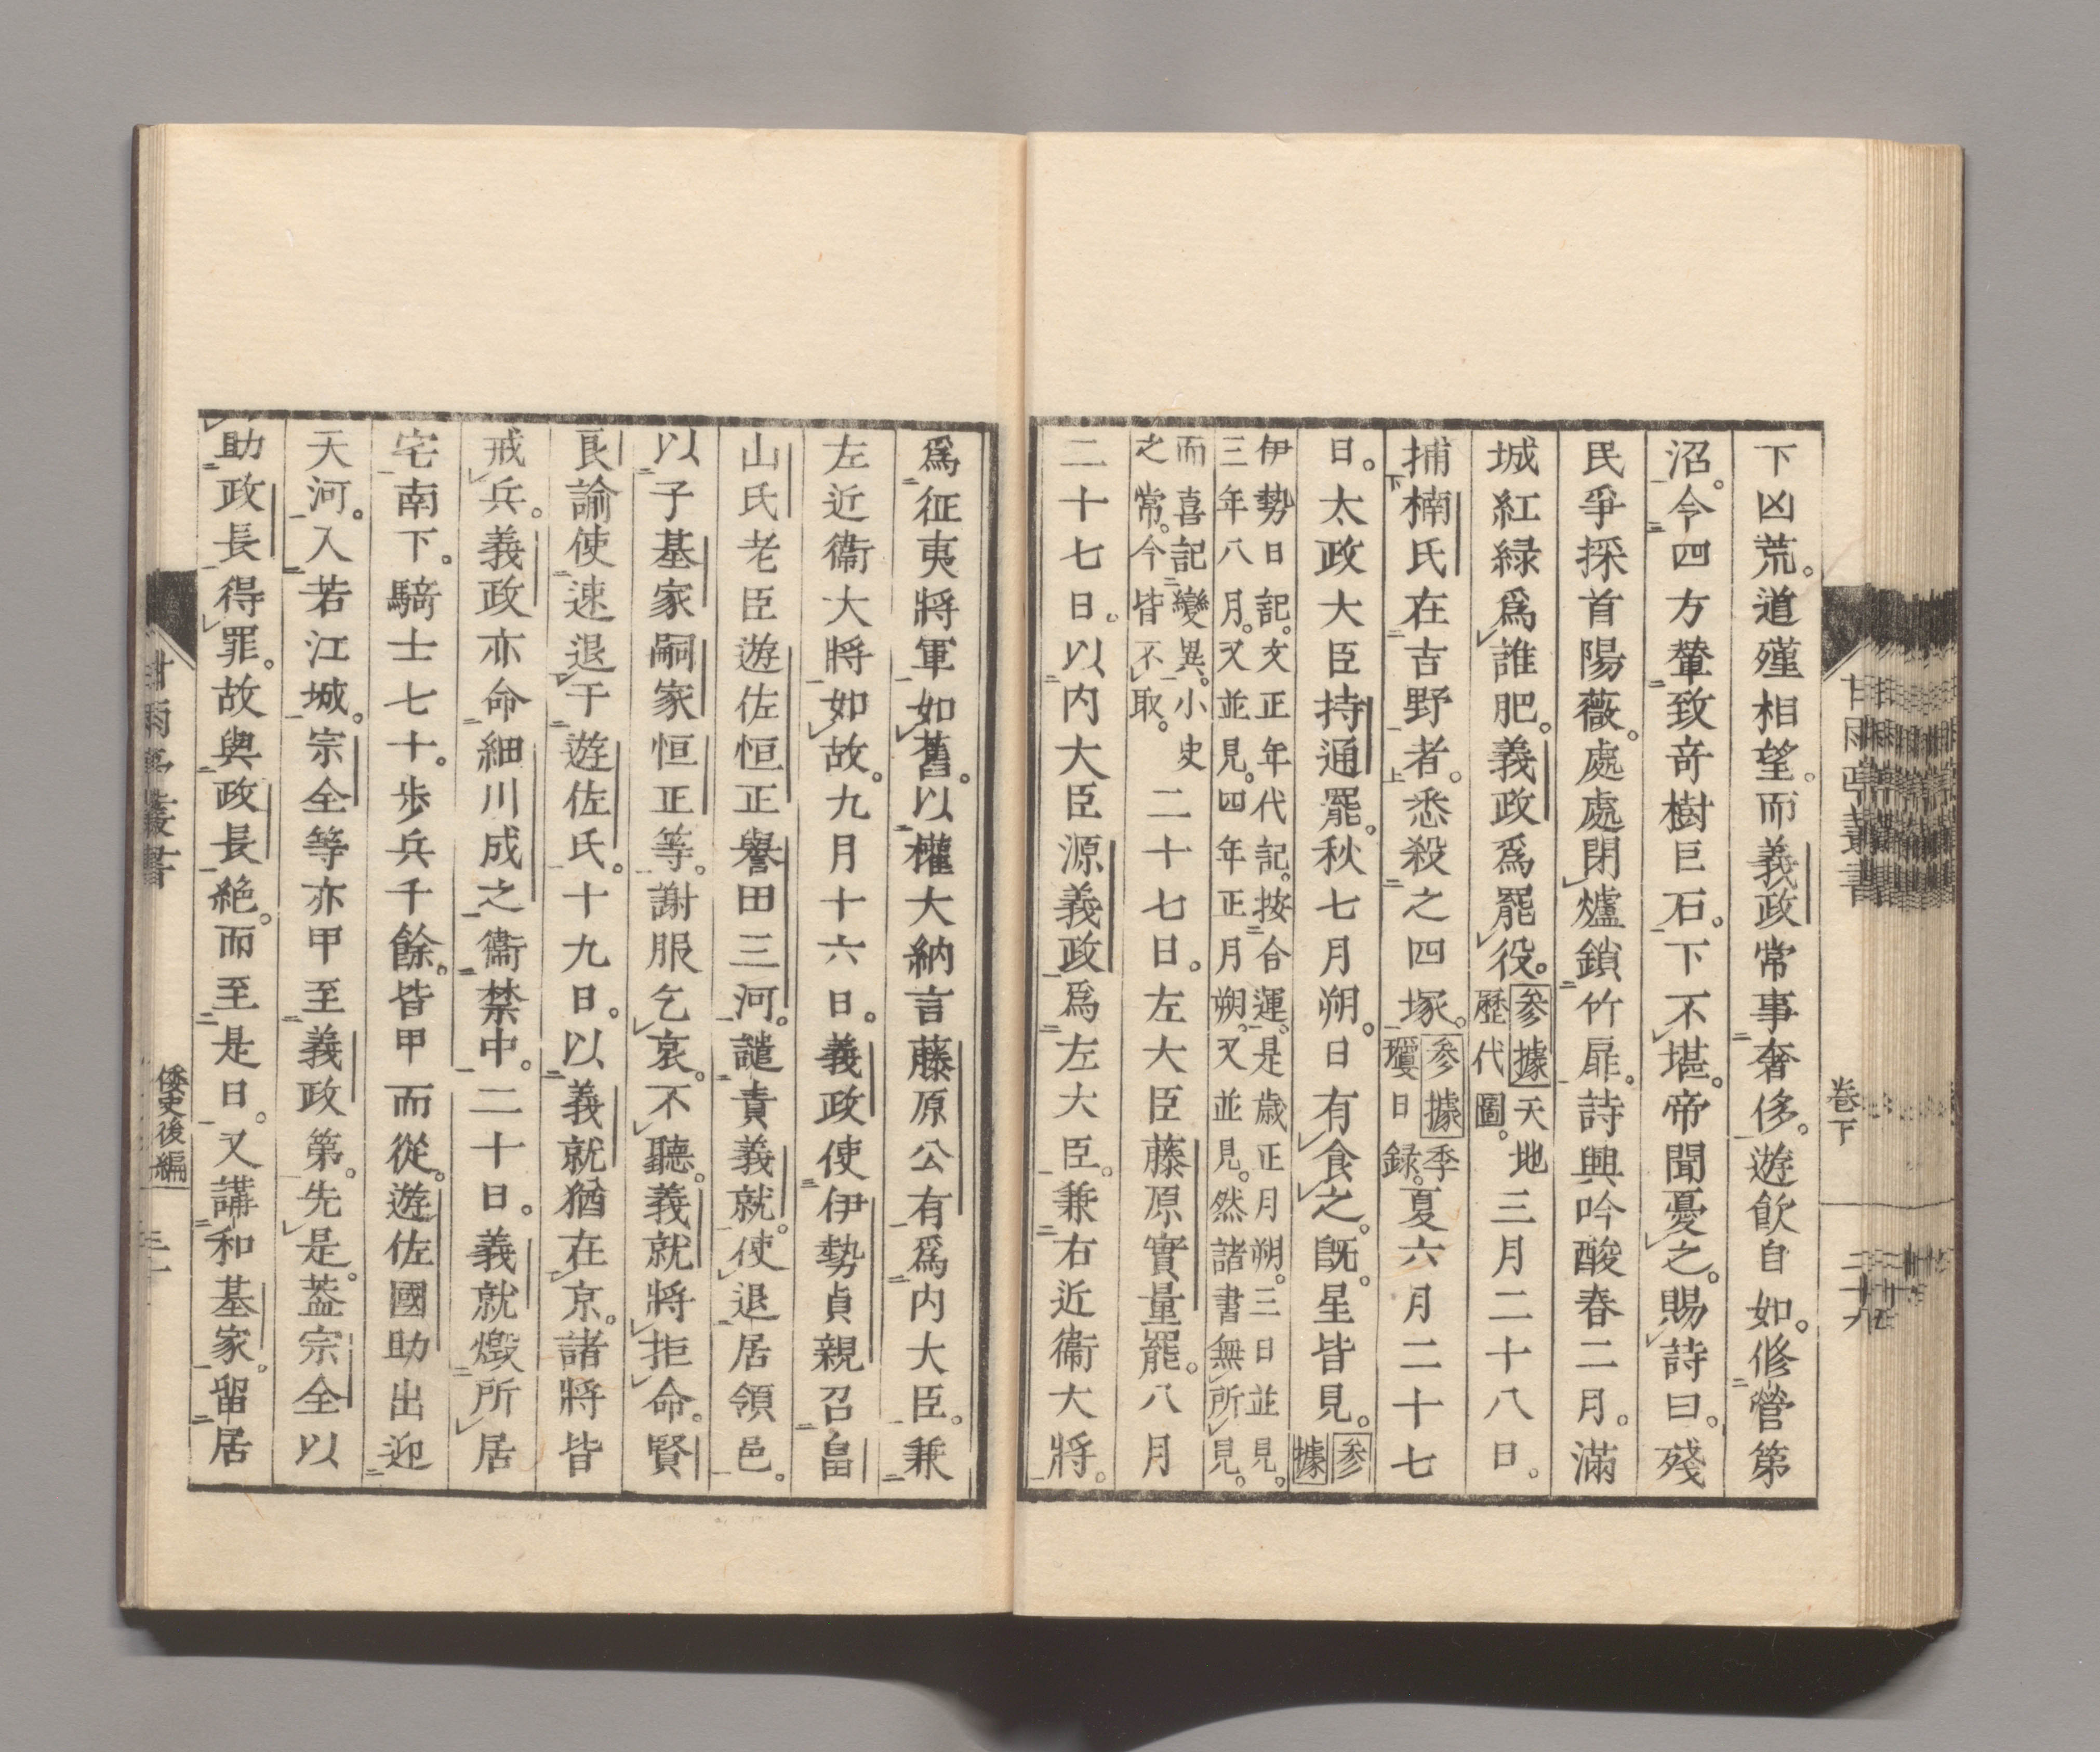 下凶荒。道殣相望。而義政常事奢侈。遊飲自如。修營第
沼。今四方輦致奇樹巨石。下不堪。帝聞憂之。賜詩曰。殘
民爭採首陽薇。處處閉爐鎖竹扉。詩興吟酸春二月。滿
城紅緑爲誰肥。義政爲罷役。參據天地歷代圖。三月二十八日。
捕楠氏在吉野者。悉殺之四塚。參據季瓊日録。夏六月二十七
日。太政大臣持通罷。秋七月朔。日有食之。既。星皆見。參據
伊勢日記。文正年代記。按合運。是歲正月朔。三日並見。
三年八月。又並見。四年正月朔。又並見。然諸書無所見。
而喜記變異。小史
之常。今皆不取。二十七日。左大臣藤原實量罷。八月
二十七日。以内大臣源義政爲左大臣。兼右近衞大將。
爲征夷將軍如舊。以權大納言藤原公有爲内大臣。兼
左近衞大將如故。九月十六日。義政使伊勢貞親召畠
山氏老臣遊佐恒正譽田三河。譴責義就。使退居領邑。
以子基家嗣家恒正等。謝服乞哀。不聽。義就將拒命。賢
良諭使速退于遊佐氏。十九日。以義就猶在京。諸將皆
戒兵。義政亦命細川成之衞禁中。二十日。義就燬所居
宅南下。騎士七十。歩兵千餘。皆甲而從。遊佐國助出迎
天河。入若江城。宗全等亦甲至義政第。先是。蓋宗全以
助政長得罪。故與政長絶。而至是日。又講和基家。留居
甘雨亭叢書
卷下
二十六
倭史後編